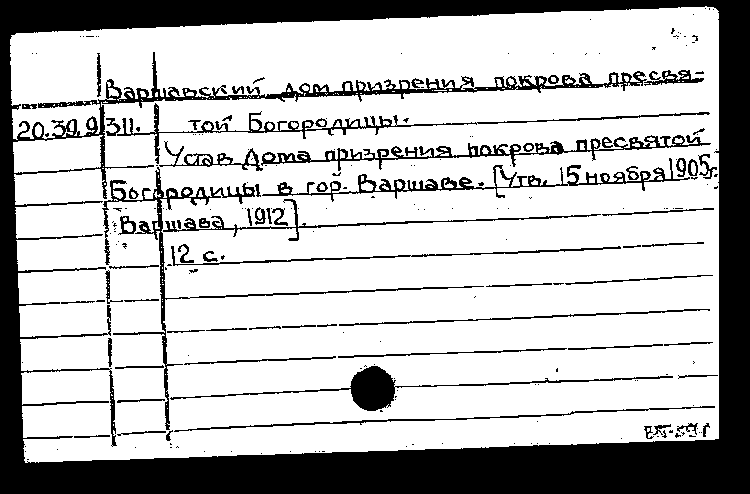 Варшавский дом призрения покрова пресвя=
20.30.9.311. той Богородицы.
Устав Дома призрения покрова пресвятой
Богородицы в гор. Варшаве. [Утв. 15 ноября 1905г.
Варшава, 1912].
12 с.